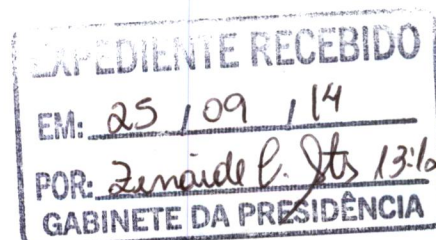 EXPEDIENTE RECEBIDO
EM: 25 / 09 / 14
POR: Zenaide C. 13:10
GABINETE DA PRESIDÊNCIA